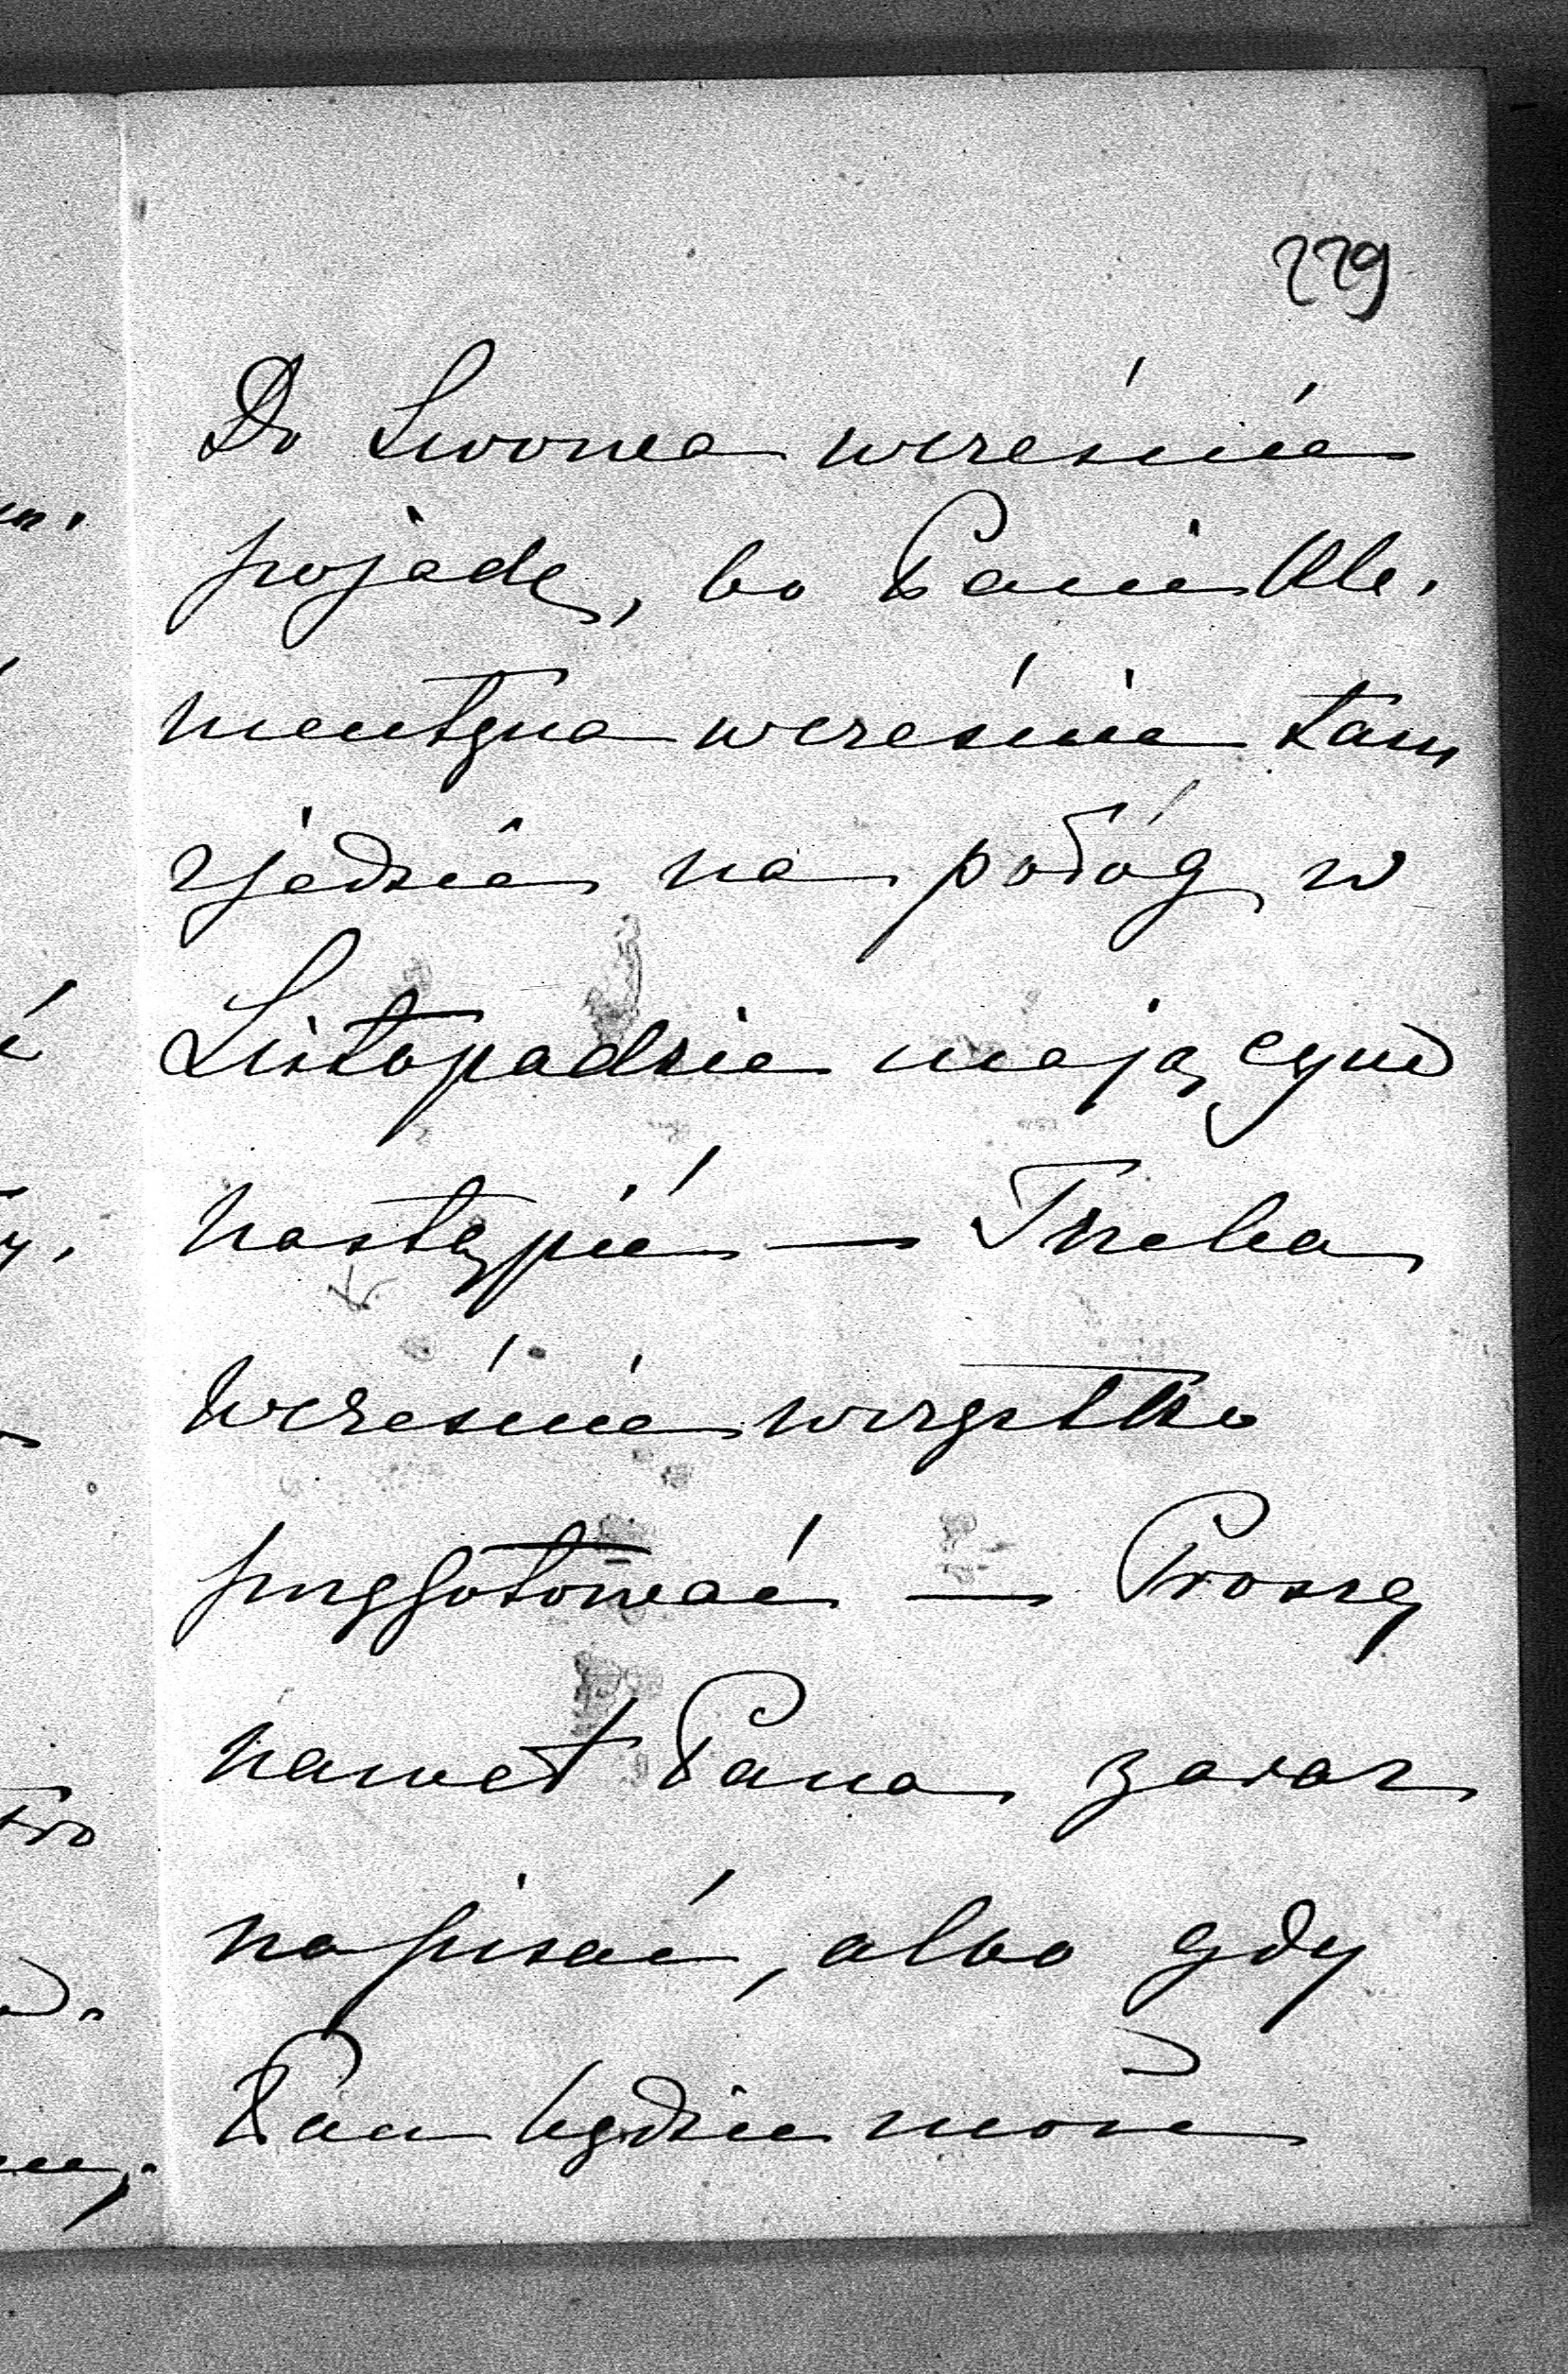 229
Do Lwowa wcześnie
pojadę, bo Pani Kle-
mentyna wcześnie tam
zjedzie na połóg w
Listopadzie mającym
nastąpić — Trzeba
wcześnie wszystko
przygotować — Proszę
nawet Pana zaraz
napisać, albo gdy
Pan będzie może